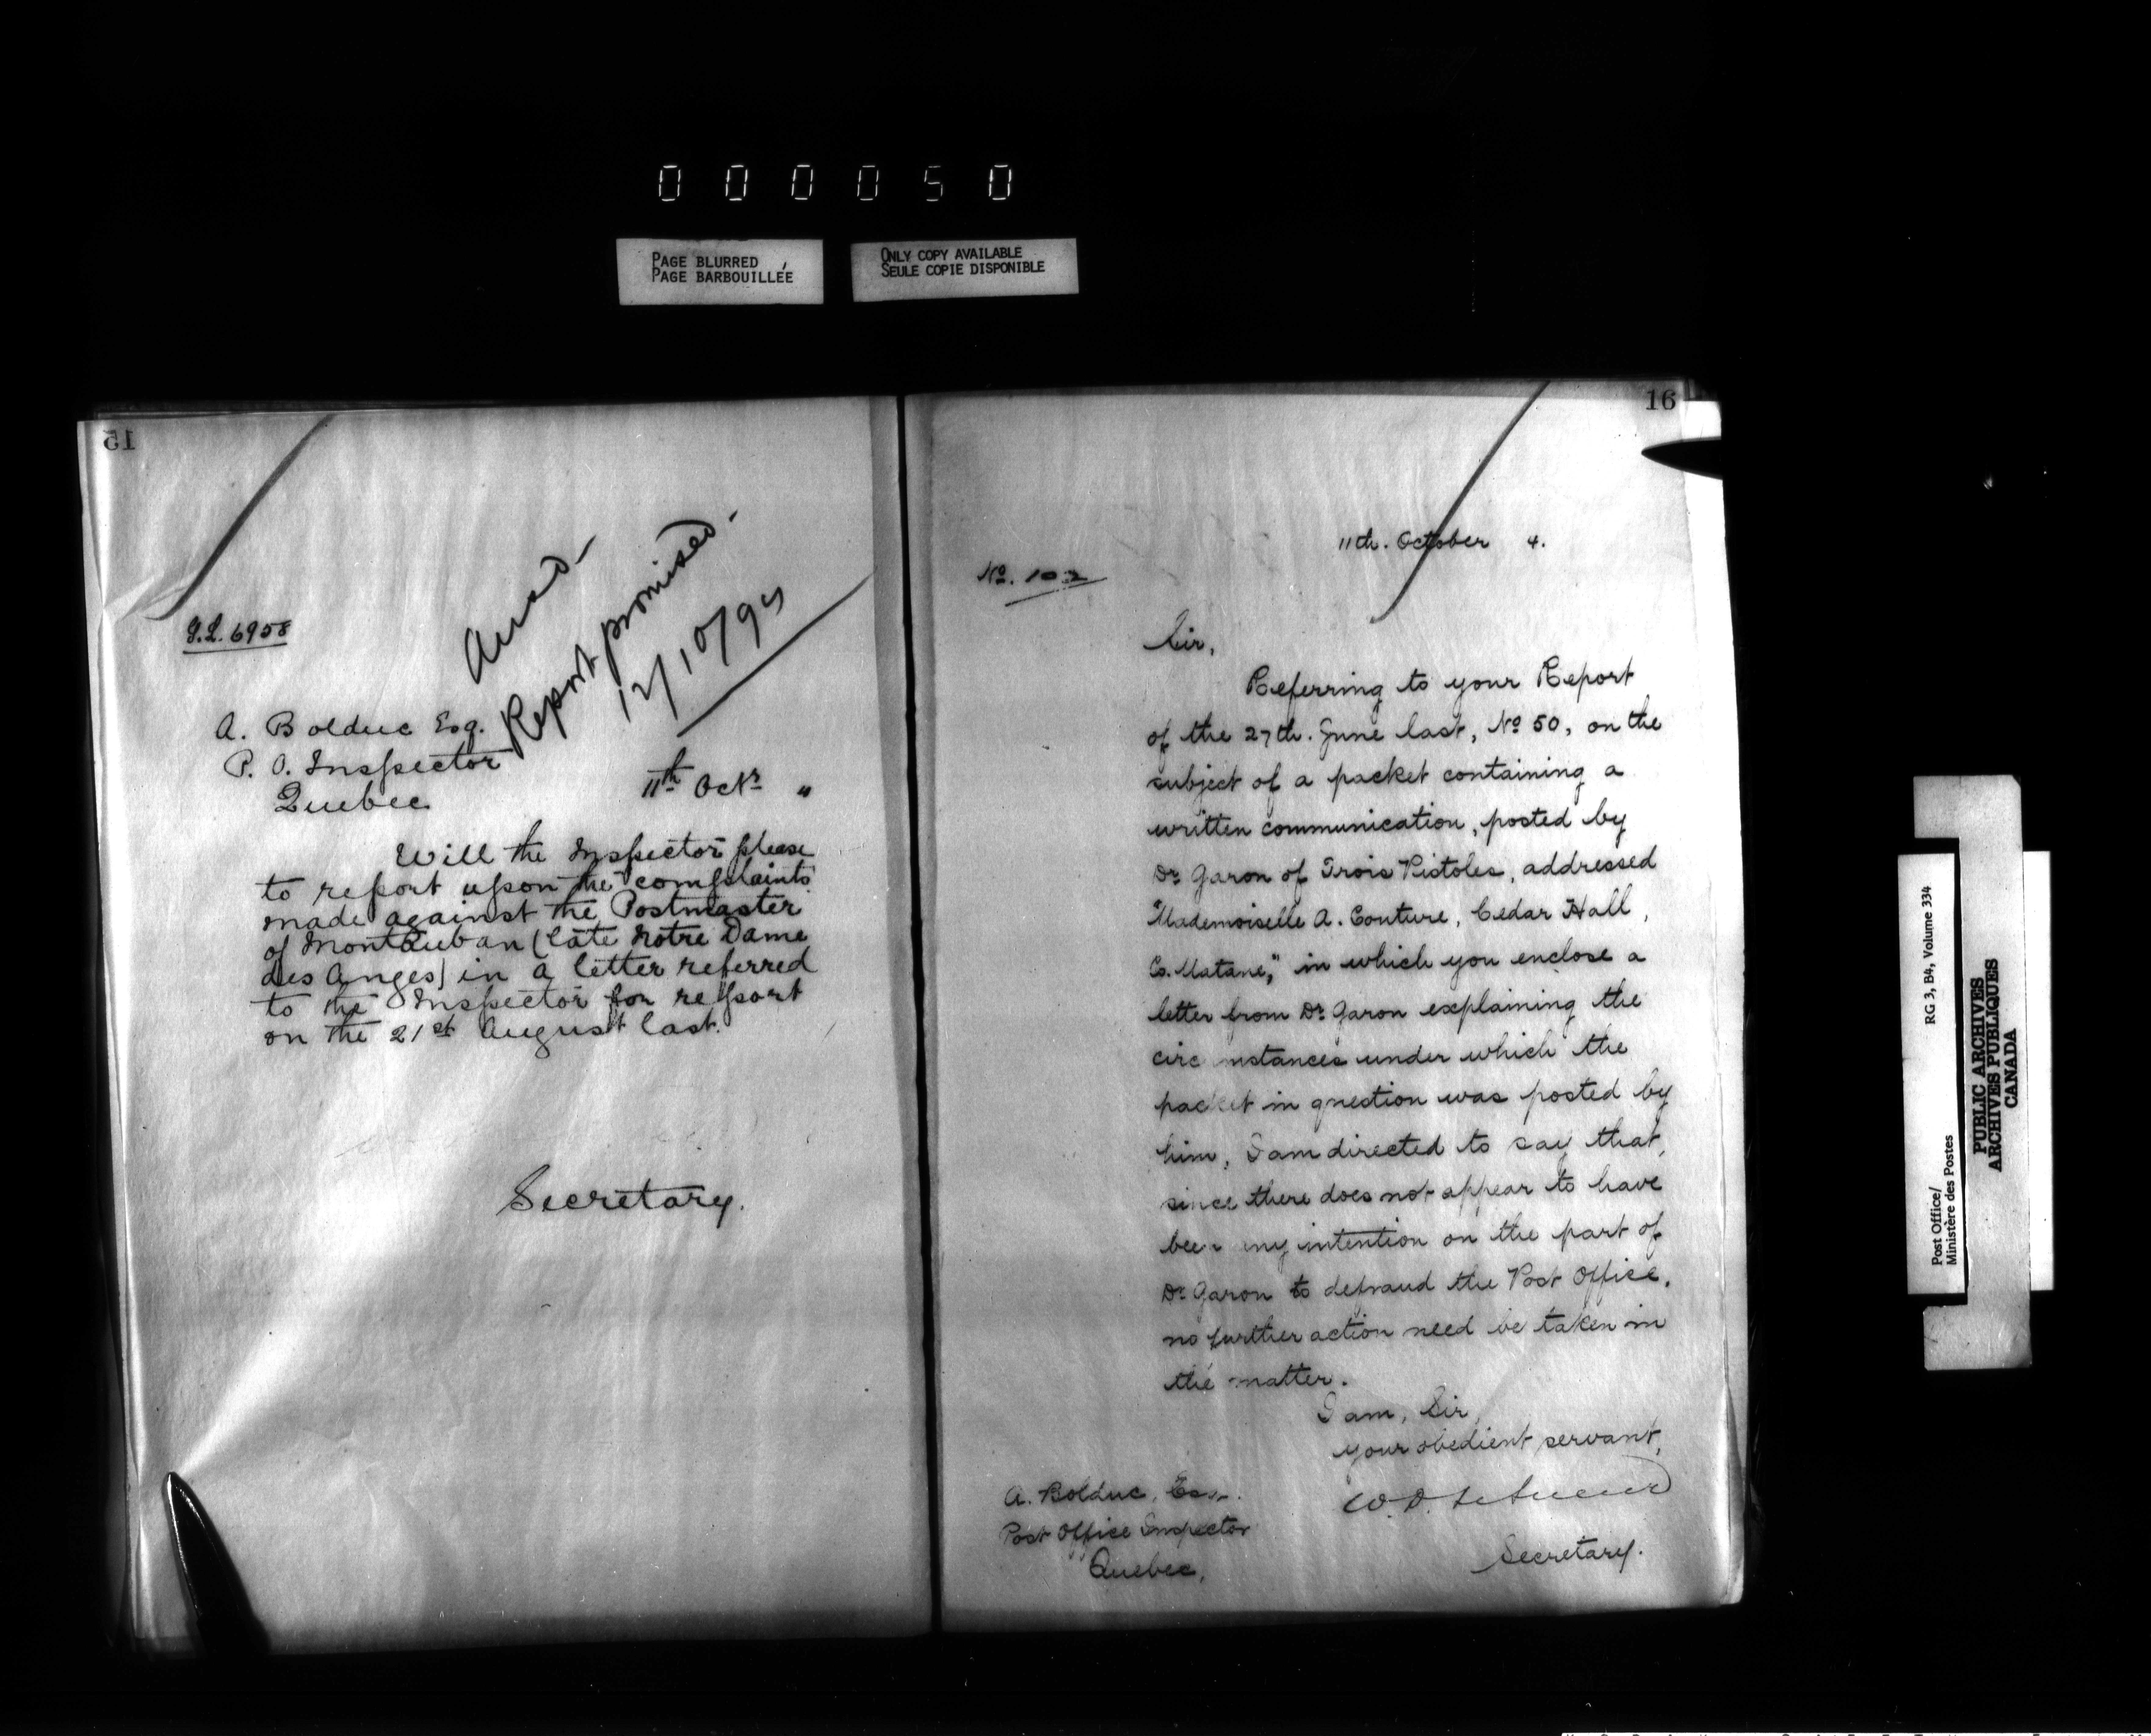 0 0 0 0 5 0
PAGE BLURRED
PAGE BARBOUILLÉE
ONLY COPY AVAILABLE
SEULE COPIE DISPONIBLE
15
G.L. 6958
Ansd-
Report promised.-
12/10/94
A. Bolduc Esq.
P. O. Inspector
Quebec
11th Octr "
Will the Inspector please
to report upon the complaints
made against the Postmaster
of Montauban (late Notre Dame
des Anges) in a letter referred
to the Inspector for report
on the 21st August last.
Secretary.
16
11th. October 4.
No. 102
Sir,
Referring to your Report
of the 27th. June last, No 50, on the
subject of a packet containing a
written communication, posted by
Dr Garon of Trois Pistoles, addressed
"Mademoiselle A. Couture, Cedar Hall,
Co. Matane," in which you enclose a
letter from Dr Garon explaining the
circ mstances under which the
packet in question was posted by
him, I am directed to say that,
since there does not appear to have
been any intention on the part of
Dr Garon to defraud the Post Office,
no further action need be taken in
the matter.
I am, Sir,
your obedient servant,
W. D.
Secretary.
A. Bolduc, Esq.
Post Office Inspector
Quebec,
Post Office/
Ministère des Postes
RG 3, B4, Volume 334
PUBLIC ARCHIVES
ARCHIVES PUBLIQUES
CANADA